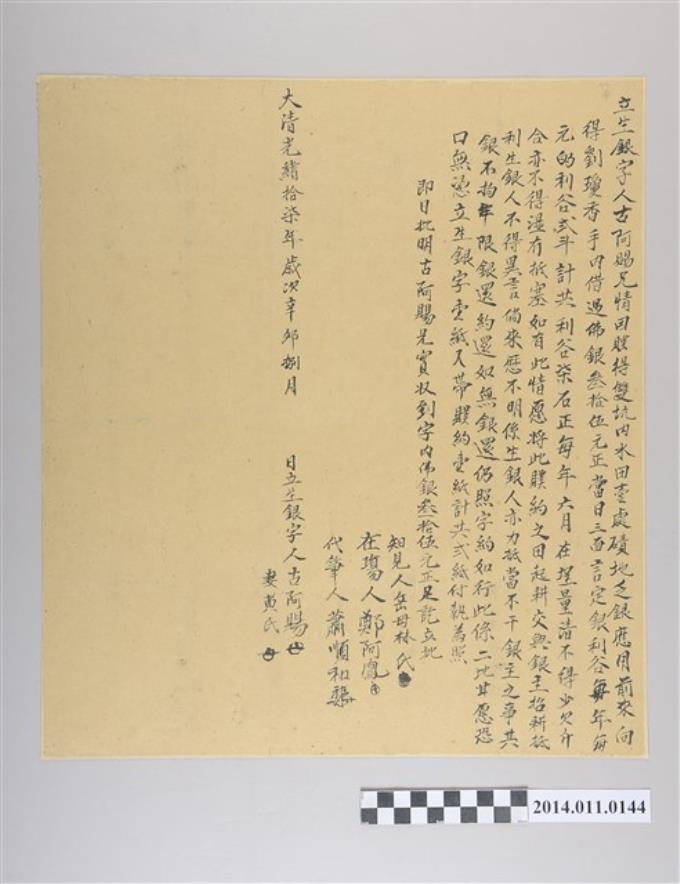 立生銀字人古阿賜兄情因贌得雙坑內水田壹處磧地乏銀應用前來向
得劉瓊香手內借過佛銀叁拾伍元正當日三面言定銀利谷每年每
元的利谷弍斗計共利谷柒石正每年六月在埕量清不得少欠升
合亦不得濕冇抵塞如有此情愿將此贌約之田起耕交與銀主招耕抵
利生銀人不得異言倘來歷不明係生銀人亦力抵當不干銀主之事其
銀不拘年限銀還約還如無銀還仍照字約如行此係二比甘愿恐
口無憑立生銀字壹紙又帶贌約壹紙計共弍紙付執為照
即日批明古阿賜兄實收到字內佛銀叁拾伍元正足訖立批
知見人岳母林氏
在塲人鄭阿鳳
代筆人蕭順和
大清光緒拾柒年歲次辛卯捌月 日立生銀字人古阿賜
妻黄氏
2014.011.0144